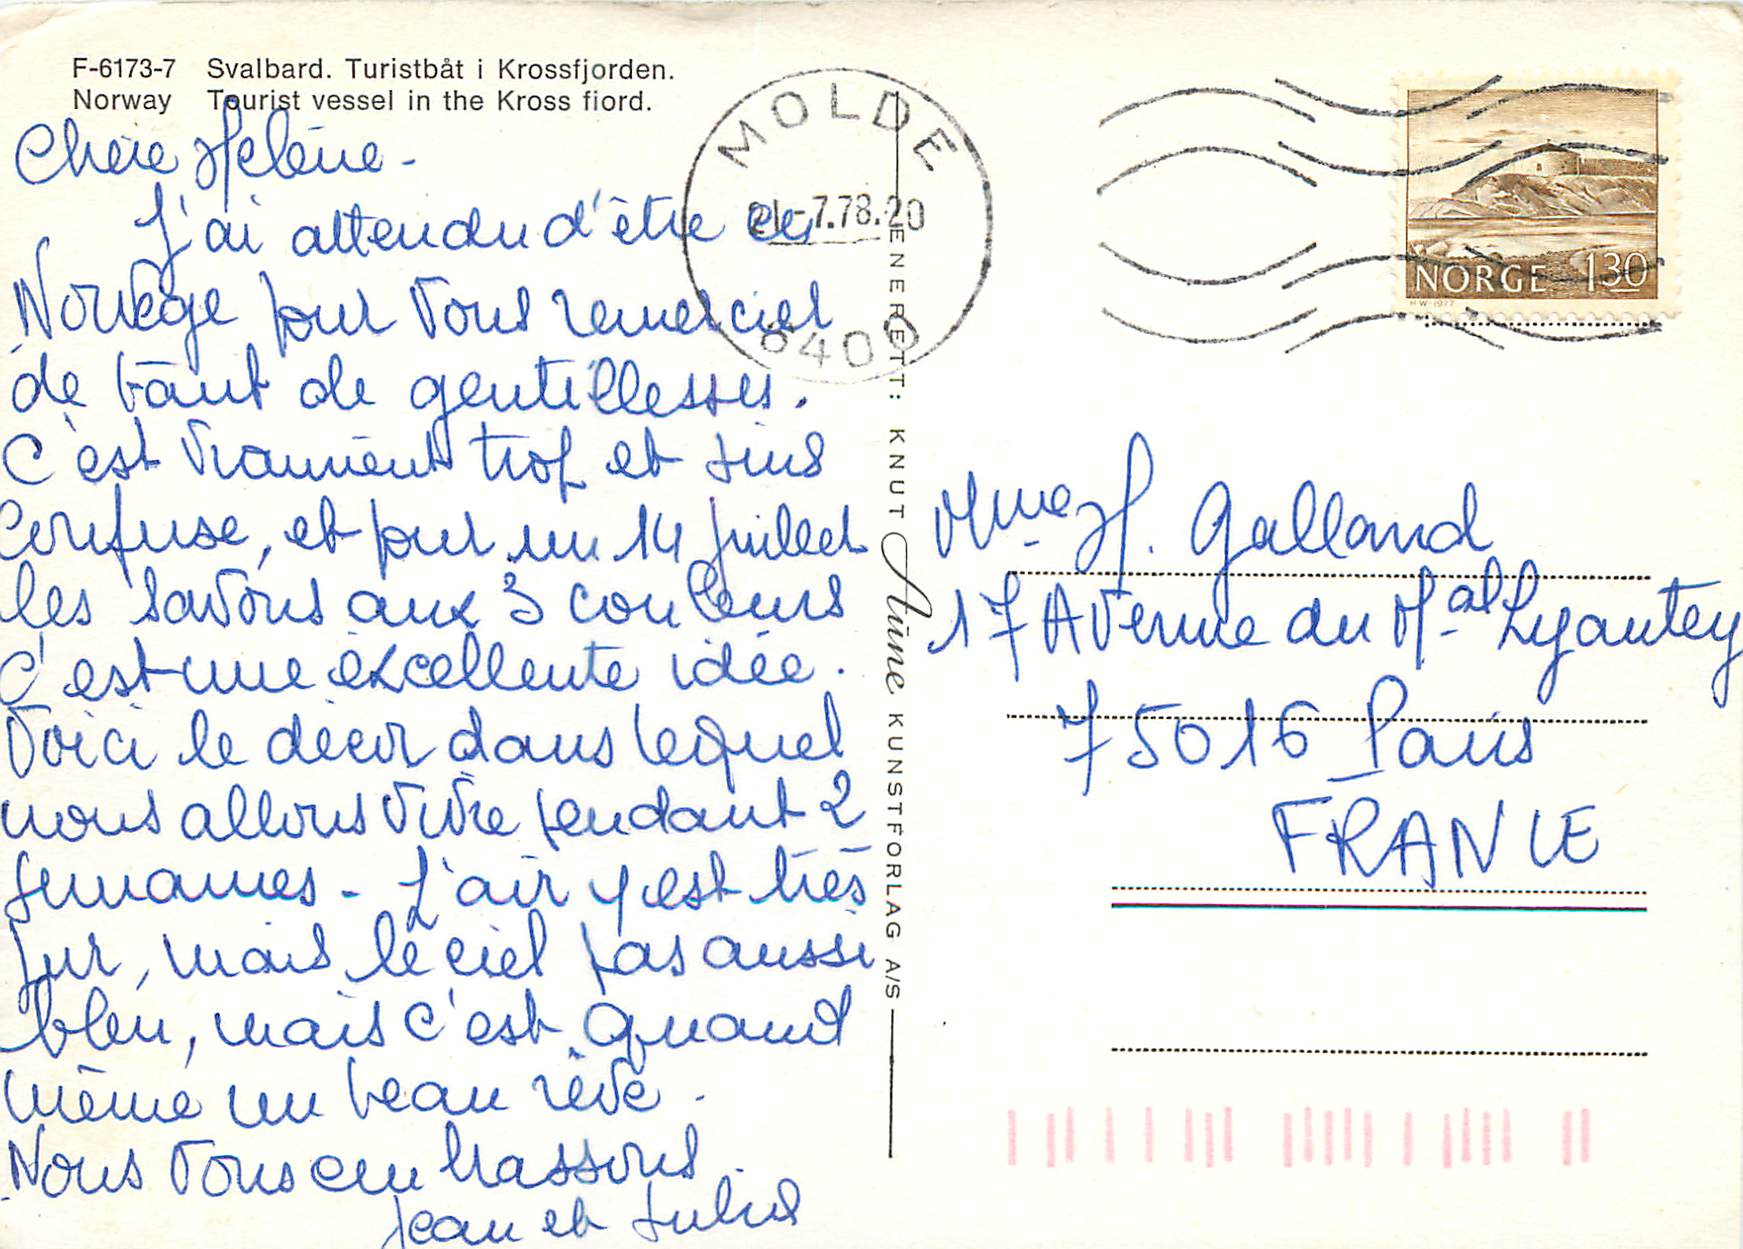 F-6173-7 Svalbard. Turistbåt i Krossfjorden.
Norway Tourist vessel in the Kross fiord.
Chère Hélène -
J'ai attendu d'être en
Norvège pour vous remercier
de tant de gentillesses.
C'est vraiment trop et suis
confuse, et pour un 14 juillet
les savons aux 3 couleurs
c'est une excellente idée.
Voici le décor dans lequel
nous allons vivre pendant 2
semaines - l'air y est très
pur, mais le ciel pas aussi
bleu, mais c'est quand
même un beau rêve.
Nous vous embrassons
Jean et
MOLDE
21.-7.78.20
6400
ENERETT: KNUT Aune KUNSTFORLAG A/S
NORGE 130
HW-1977
Mme H. Galland
17 Avenue du Mal Lyautey
75016 Paris
FRANCE